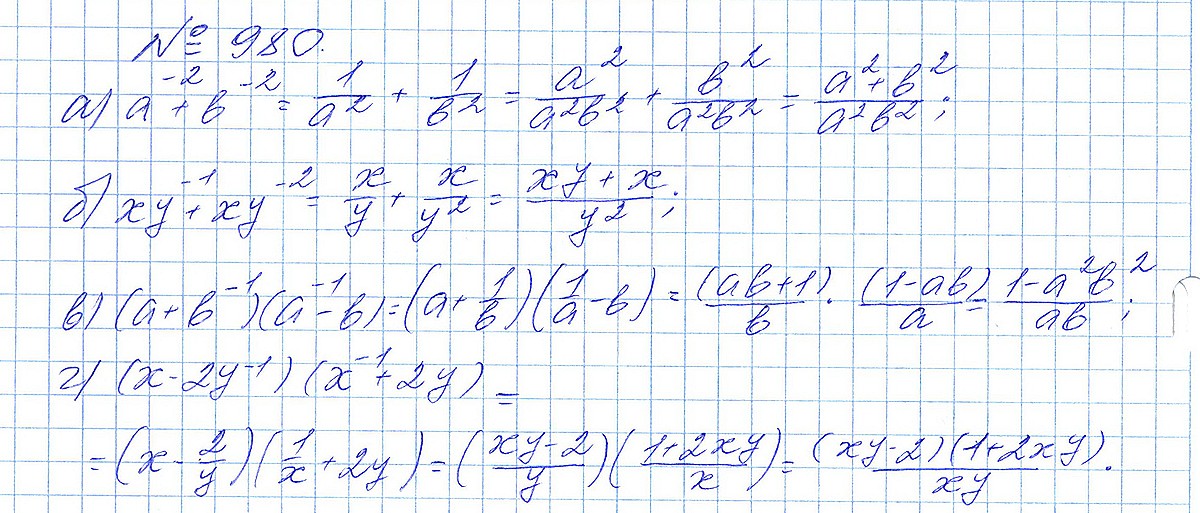 № 980.
а) a⁻² + b⁻² = 1/a² + 1/b² = a²/a²b² + b²/a²b² = a² + b²/a²b²;
б) xy⁻¹ + xy⁻² = x/y + x/y² = xy + x/y²;
в) (a + b⁻¹)(a⁻¹ - b) = (a + 1/b)(1/a - b) = (ab+1)/b · (1-ab)/a = 1-a²b²/ab;
г) (x - 2y⁻¹)(x⁻¹ + 2y) =
= (x - 2/y)(1/x + 2y) = (xy-2/y)(1+2xy/x) = (xy-2)(1+2xy)/xy.